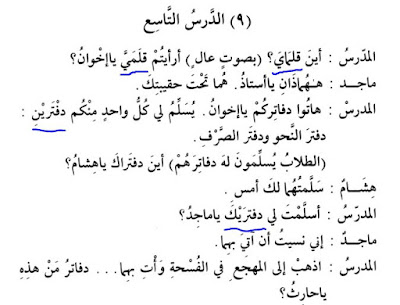 (٩) الدَّرسُ التَّاسِع
المدَرّسُ : أينَ قلمَايَ؟ (بصوتٍ عالٍ) أرأيتُمْ قلمَيَّ ياإخْوانُ؟
ماجـد : هـٰهُماذَانِ ياأستاذُ. هُما تَحْتَ حقيبتِكَ.
المدرسْ : هاتُوا دفاترِكُمْ ياإخوانُ. يُسَلِّمُ لي كُلُّ واحدٍ مِنْكُم دفْتَرَيْنِ :
دفترَ النَّحوِ ودفتَر الصَّرْفِ.
(الطلابُ يُسلِّمُونَ لهَ دفاترَهُمْ) أينَ دفتَراكَ ياهِشامُ؟
هِشَـامُ : سَلَّمتُهُما لكَ أمسِ.
المدرّسُ : أسلَّمْتَ لي دفترَيْكَ ياماجِدُ؟
ماجـدٌ : إني نسيتُ أن آتيَ بِهِما.
المدرّسُ : اذهبْ إلى المهجَعِ في الفُسْحةِ وَأتِ بِهِما... دفاترُ مَنْ هَذِهِ
ياحارِثُ؟